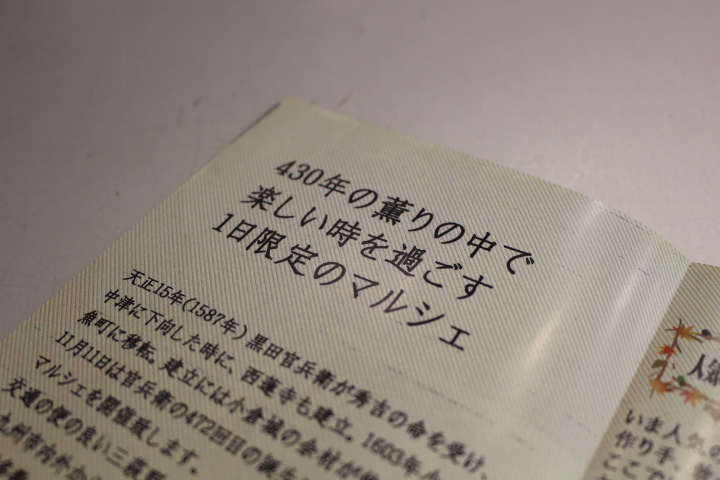 430年の薫りの中で
楽しい時を過ごす
1日限定のマルシェ
天正15年(1587年)黒田官兵衛が秀吉の命を受け、
中津に下向した時に、西蓮寺も建立。1603年小
魚町に移転。建立には小倉城の余材が
11月11日は官兵衛の472回目の誕生
マルシェを開催致します。
交通の便の良い三萩野
九州市内外か
人気
いま人気の
作り手、
ここで